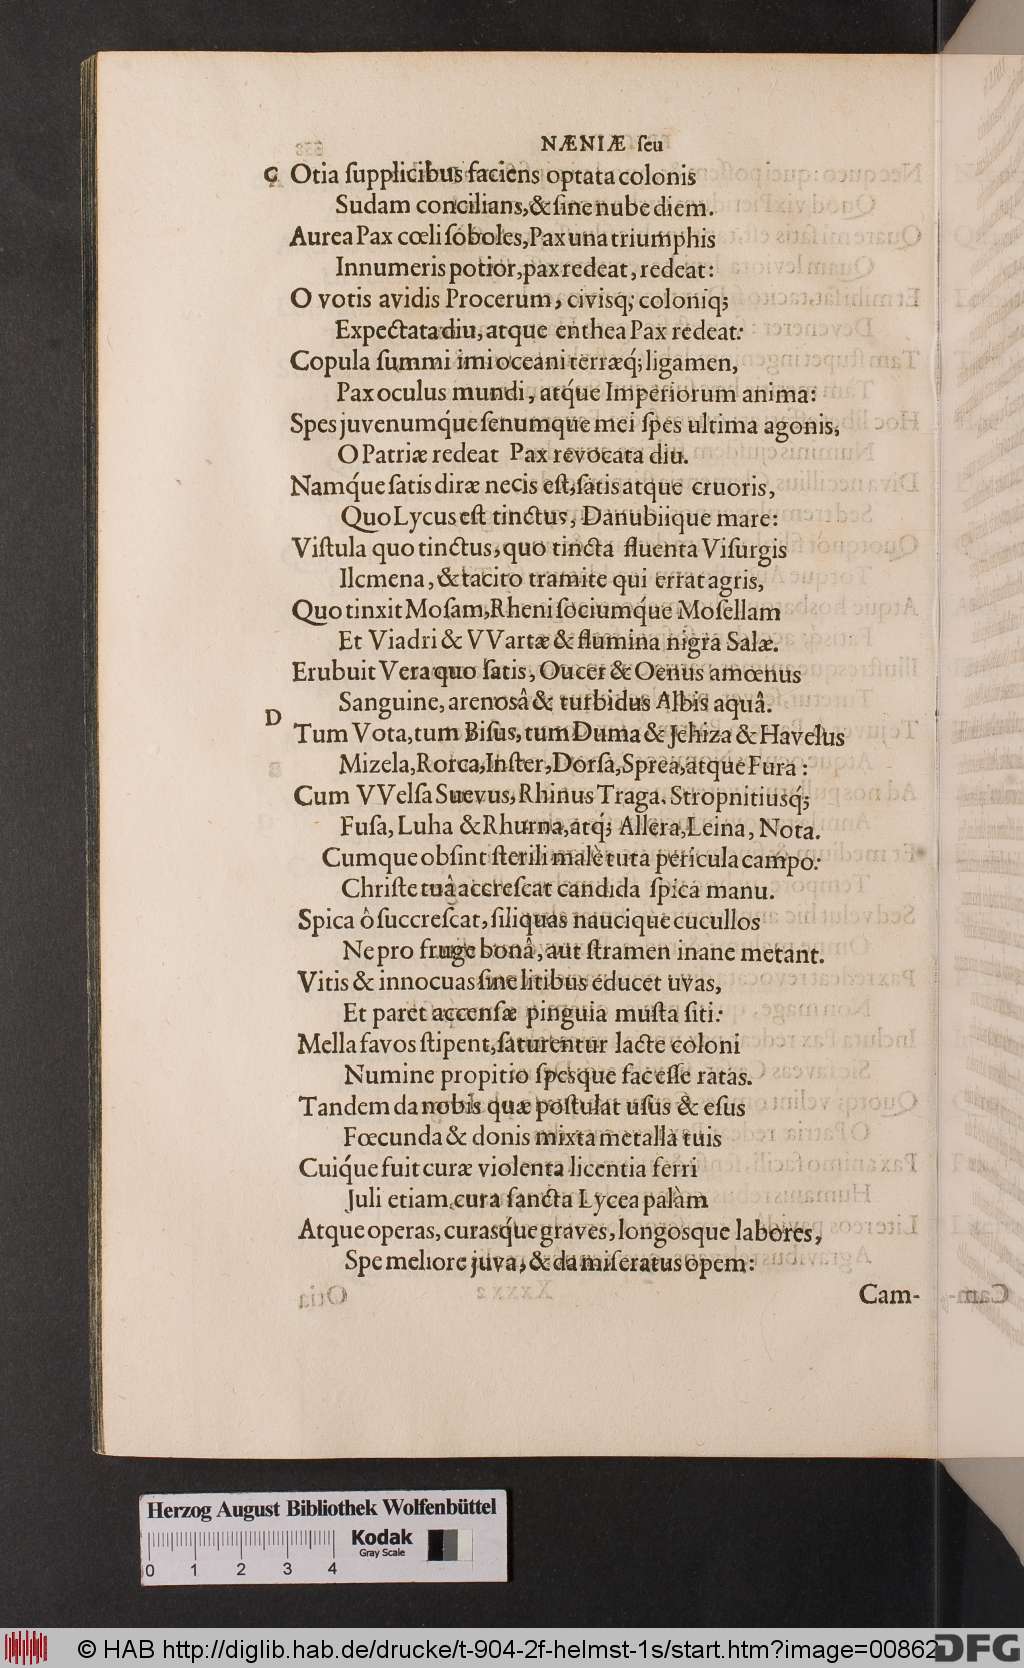 NÆNIÆ ſeu
C Otia ſupplicibus faciens optata colonis
Sudam concilians, & ſine nube diem.
Aurea Pax cœli ſoboles, Pax una triumphis
Innumeris potior, pax redeat, redeat:
O votis avidis Procerum, civisq; coloniq;
Expectata diu, atque enthea Pax redeat:
Copula ſummi imi oceani terræq́; ligamen,
Pax oculus mundi, atq́ue Imperiorum anima:
Spes juvenumq́ue ſenumque mei ſpes ultima agonis,
O Patriæ redeat Pax revocata diu.
Namq́ue ſatis diræ necis eſt, ſatis atque cruoris,
Quo Lycus eſt tinctus, Danubiique mare:
Viſtula quo tinctus, quo tincta fluenta Viſurgis
Ilcmena, & tacito tramite qui errat agris,
Quo tinxit Moſam, Rheni ſociumq́ue Moſellam
Et Viadri & VVartæ & flumina nigra Salæ.
Erubuit Vera quo ſatis, Oucer & Oenus amœnus
Sanguine, arenosâ & turbidus Albis aquâ.
D Tum Vota, tum Biſus, tum Duma & Jehiza & Havelus
Mizela, Rorca, Inſter, Dorſa, Sprea, atque Fura:
Cum VVelſa Suevus, Rhinus Traga. Stropnitiusq́;
Fuſa, Luha & Rhurna, atq́; Allera, Leina, Nota.
Cumque obſint ſterili malè tuta pericula campo:
Chriſte tuâ accreſcat candida ſpica manu.
Spica ô ſuccreſcat, ſiliquas naucique cucullos
Ne pro fruge bonâ, aut ſtramen inane metant.
Vitis & innocuas ſine litibus educet uvas,
Et paret accenſæ pinguia muſta ſiti:
Mella favos ſtipent, ſaturentur lacte coloni
Numine propitio ſpesque fac eſſe ratas.
Tandem da nobis quæ poſtulat uſus & eſus
Fœcunda & donis mixta metalla tuis
Cuiq́ue fuit curæ violenta licentia ferri
Juli etiam cura ſancta Lycea palàm
Atque operas, curasq́ue graves, longosque labores,
Spe meliore juva, & da miſeratus opem:
Cam-
Herzog August Bibliothek Wolfenbüttel
Kodak
Gray Scale
0 1 2 3 4
© HAB http://diglib.hab.de/drucke/t-904-2f-helmst-1s/start.htm?image=00862
DFG